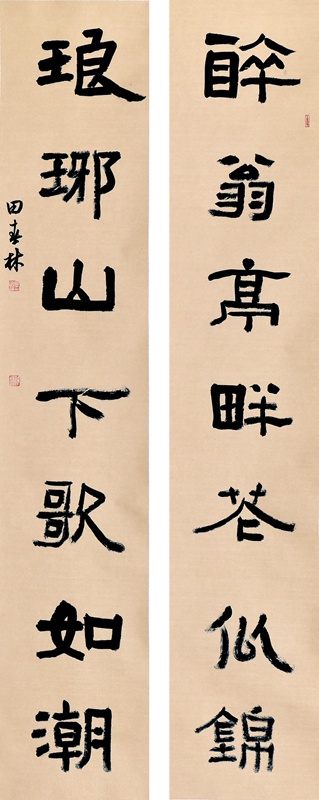 醉翁亭畔花似錦
琅琊山下歌如潮
田春林